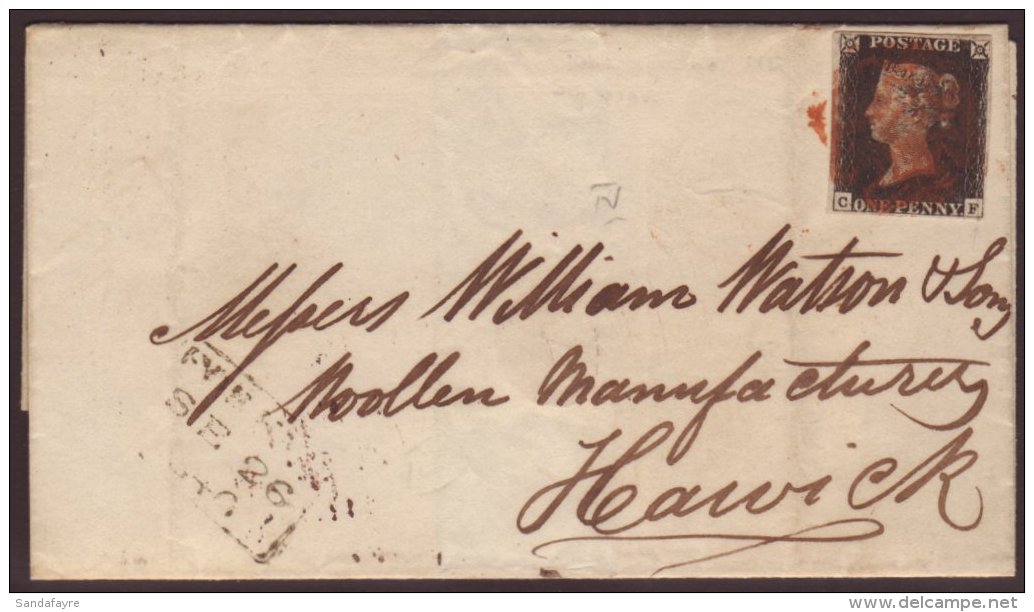 POSTAGE
C ONE PENNY F
Messers William Watson & Sons
Woollen Manufacturers
Hawick
SE 26
Sandafayre
delcampe.net